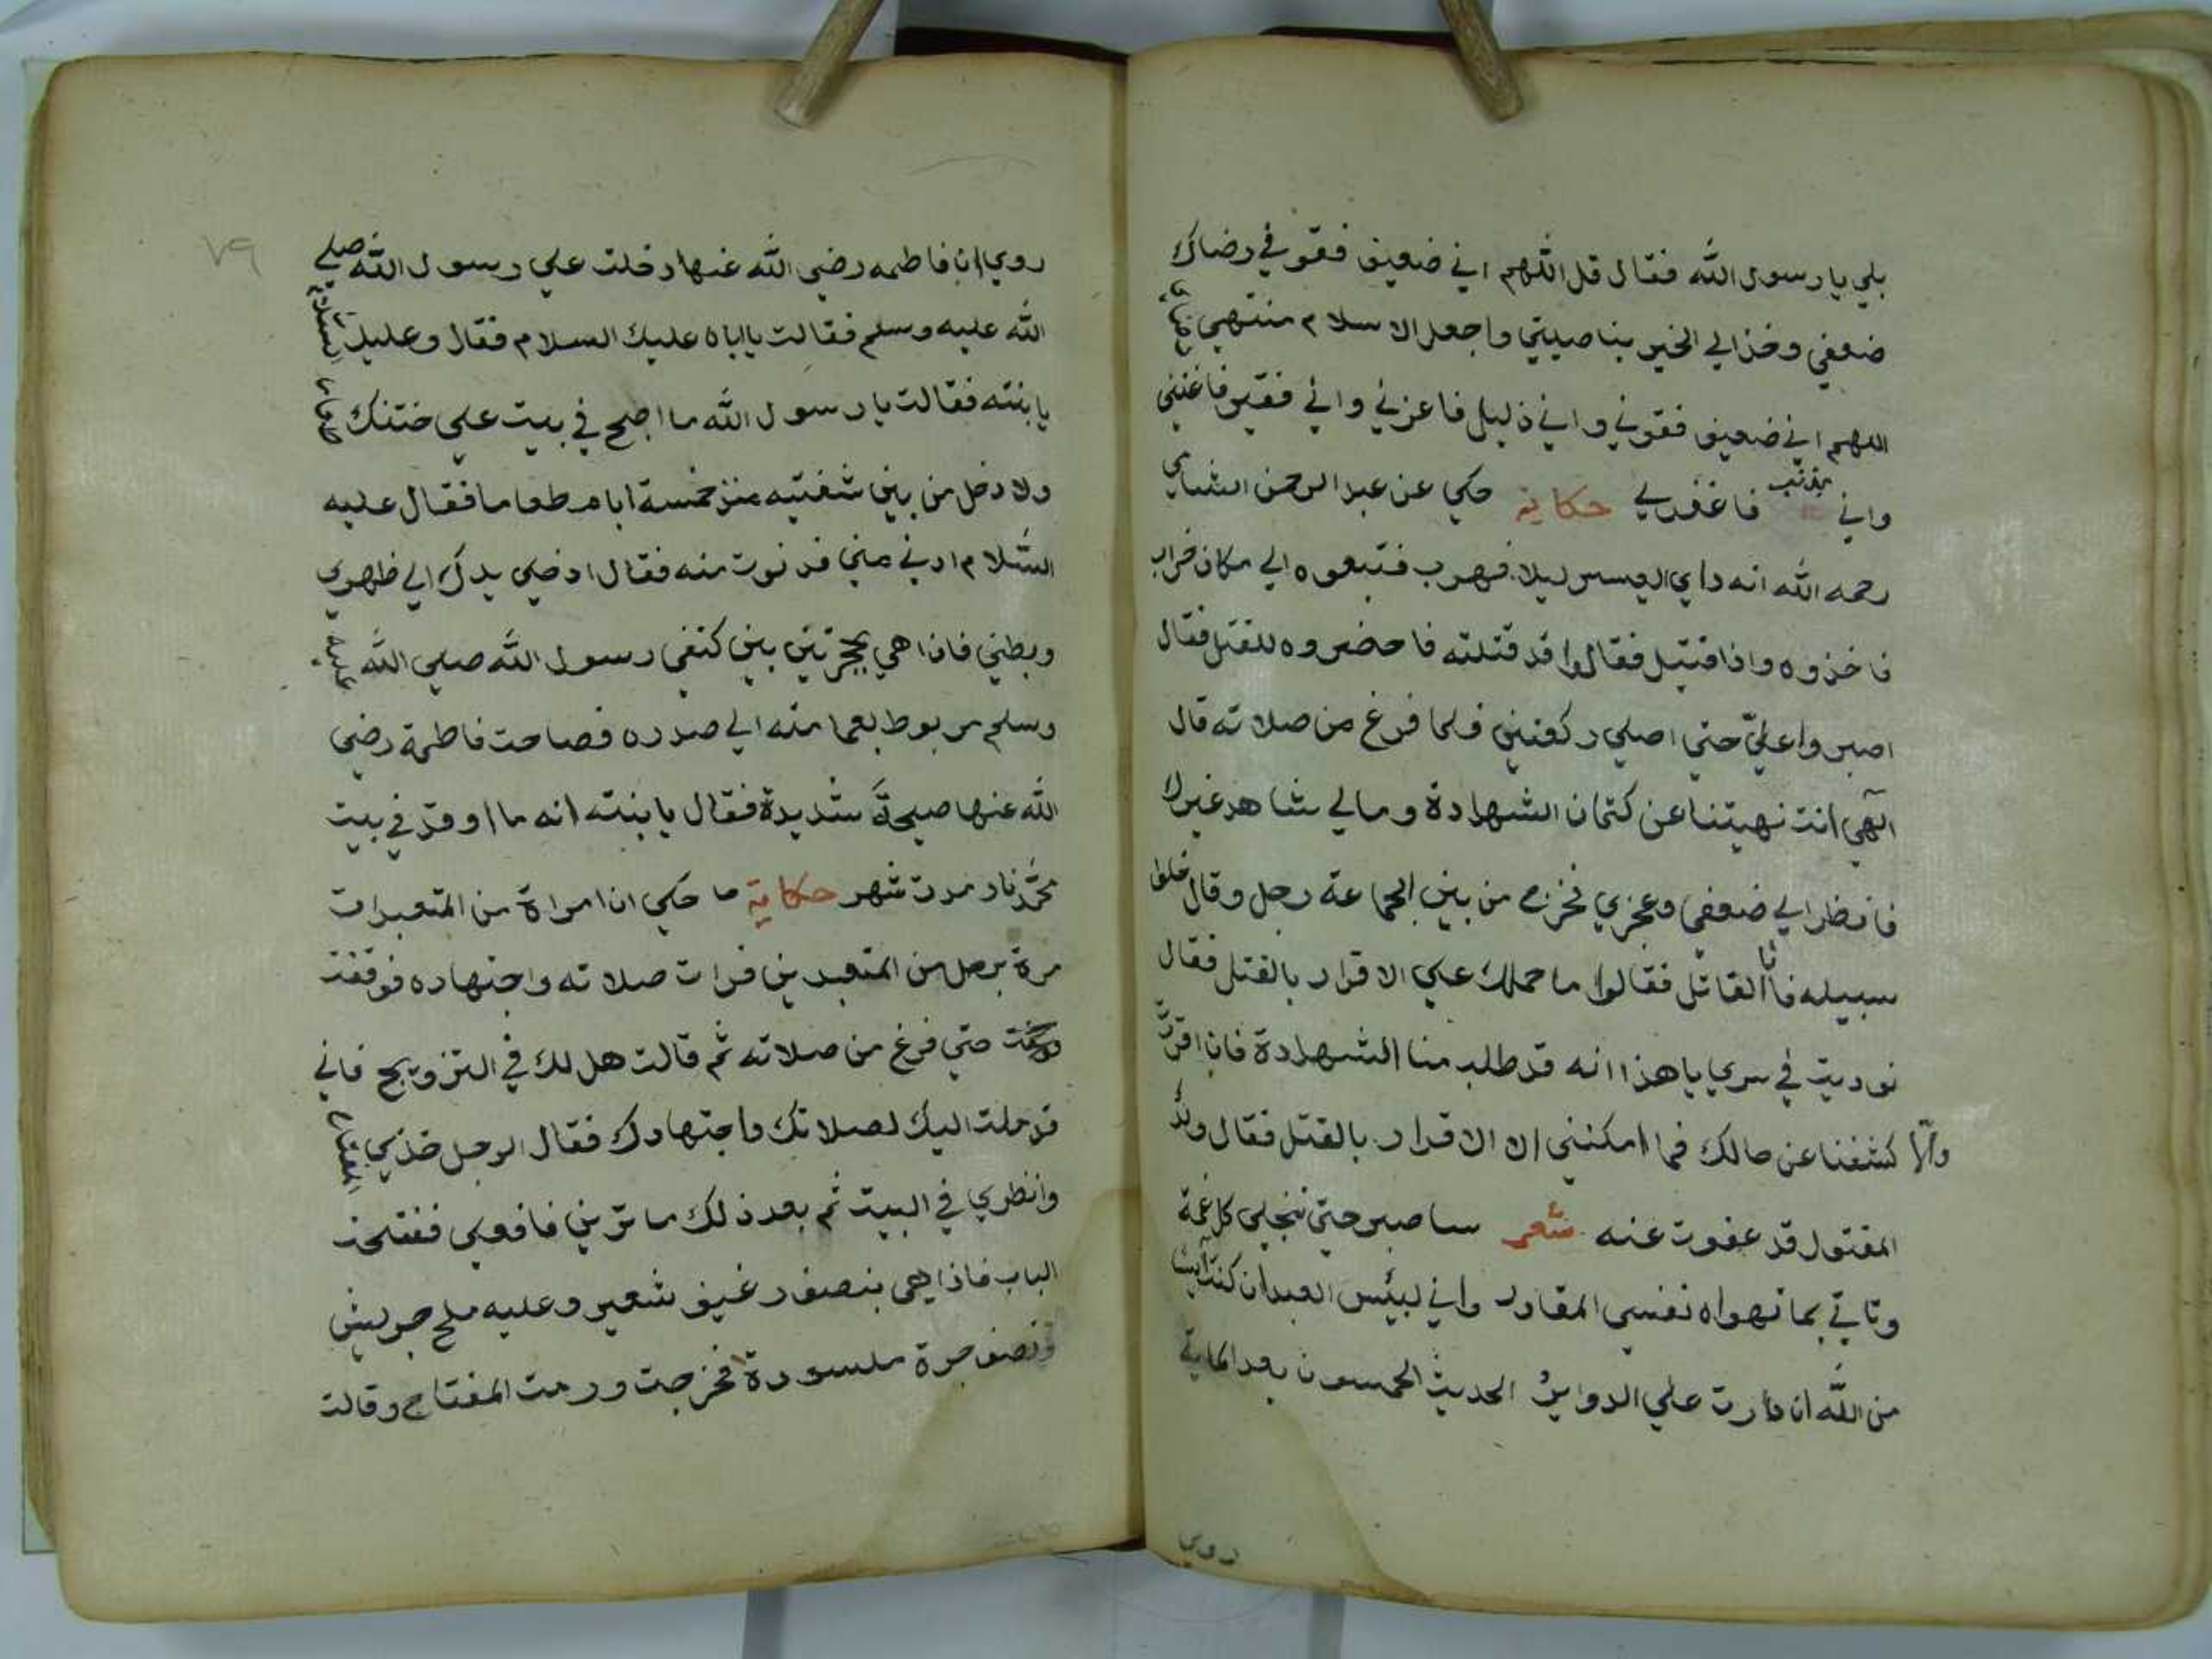 بلي يا رسول الله فقال قل اللهم اني ضعيف فقو في رضاك
ضعفي وخذ الي الخير بناصيتي واجعل الاسلام منتهي
اللهم اني ضعيف فقوني واني ذليل فاعزني واني فقير فاغنني
واني مذنب فاغفرلي حكاية حكي عن عبد الرحمن الشامي
رحمه الله انه راي العسس ليلا فهرب فتبعوه الي مكان خراب
فاخذوه واذا قتيل فقالوا قد قتلته فاحضروه للقتل فقال
اصبروا عليّ حتي اصلي ركعتين فلما فرغ من صلاته قال
الهي انت نهيتنا عن كتمان الشهادة ومالي شاهد غيرك
فانظر الي ضعفي وعجزي فخرج من بين الجماعة رجل وقال خلوا
سبيله فانا القاتل فقالوا ما حملك علي الاقرار بالقتل فقال
نوديت في سري يا هذا انه قد طلب منا الشهادة فان اقررت
والا كشفنا عن حالك فما امكنني الا الاقرار بالقتل فقال ولد
المقتول قد عفوت عنه شعر ساصبر حتي تنجلي كل غمة
وتاتي بما تهواه نفسي المقادر واني لبئس العبد ان كنت آيسا
من الله ان دارت علي الدوائر الحديث الخمسون بعد الماية
روي
٧٩
روي ان فاطمه رضي الله عنها دخلت علي رسول الله صلي
الله عليه وسلم فقالت يا اباه عليك السلام فقال وعليك السلام
يا بنته فقالت يا رسول الله ما اصبح في بيت علي ختنك طعام
ولا دخل من بين شفتيه منذ خمسة ايام طعاما فقال عليه
السّلام ادني مني فدنوت منه فقال ادخلي يدك الي ظهري
وبطني فاذا هي بحجرتين بين كتفي رسول الله صلي الله عليه
وسلم مربوط بعمامته الي صدره فصاحت فاطمة رضي
الله عنها صيحة شديدة فقال يا بنته انه ما اوقد في بيت
محمّد نار مدت شهر حكاية ما حكي ان امراة من المتعبدات
مرة برجل من المتعبدين فرات صلاته واجتهاده فوقفت
حتي فرغ من صلاته ثم قالت هل لك في التزويج فاني
قد ملت اليك لصلاتك واجتهادك فقال الرجل خذي المفتاح
وانظري في البيت ثم بعد ذلك ما ترين فافعلي ففتحت
الباب فاذا هي بنصف رغيف شعير وعليه ملح جريش
ونصف جرة مكسورة فخرجت ورمت المفتاح وقالت